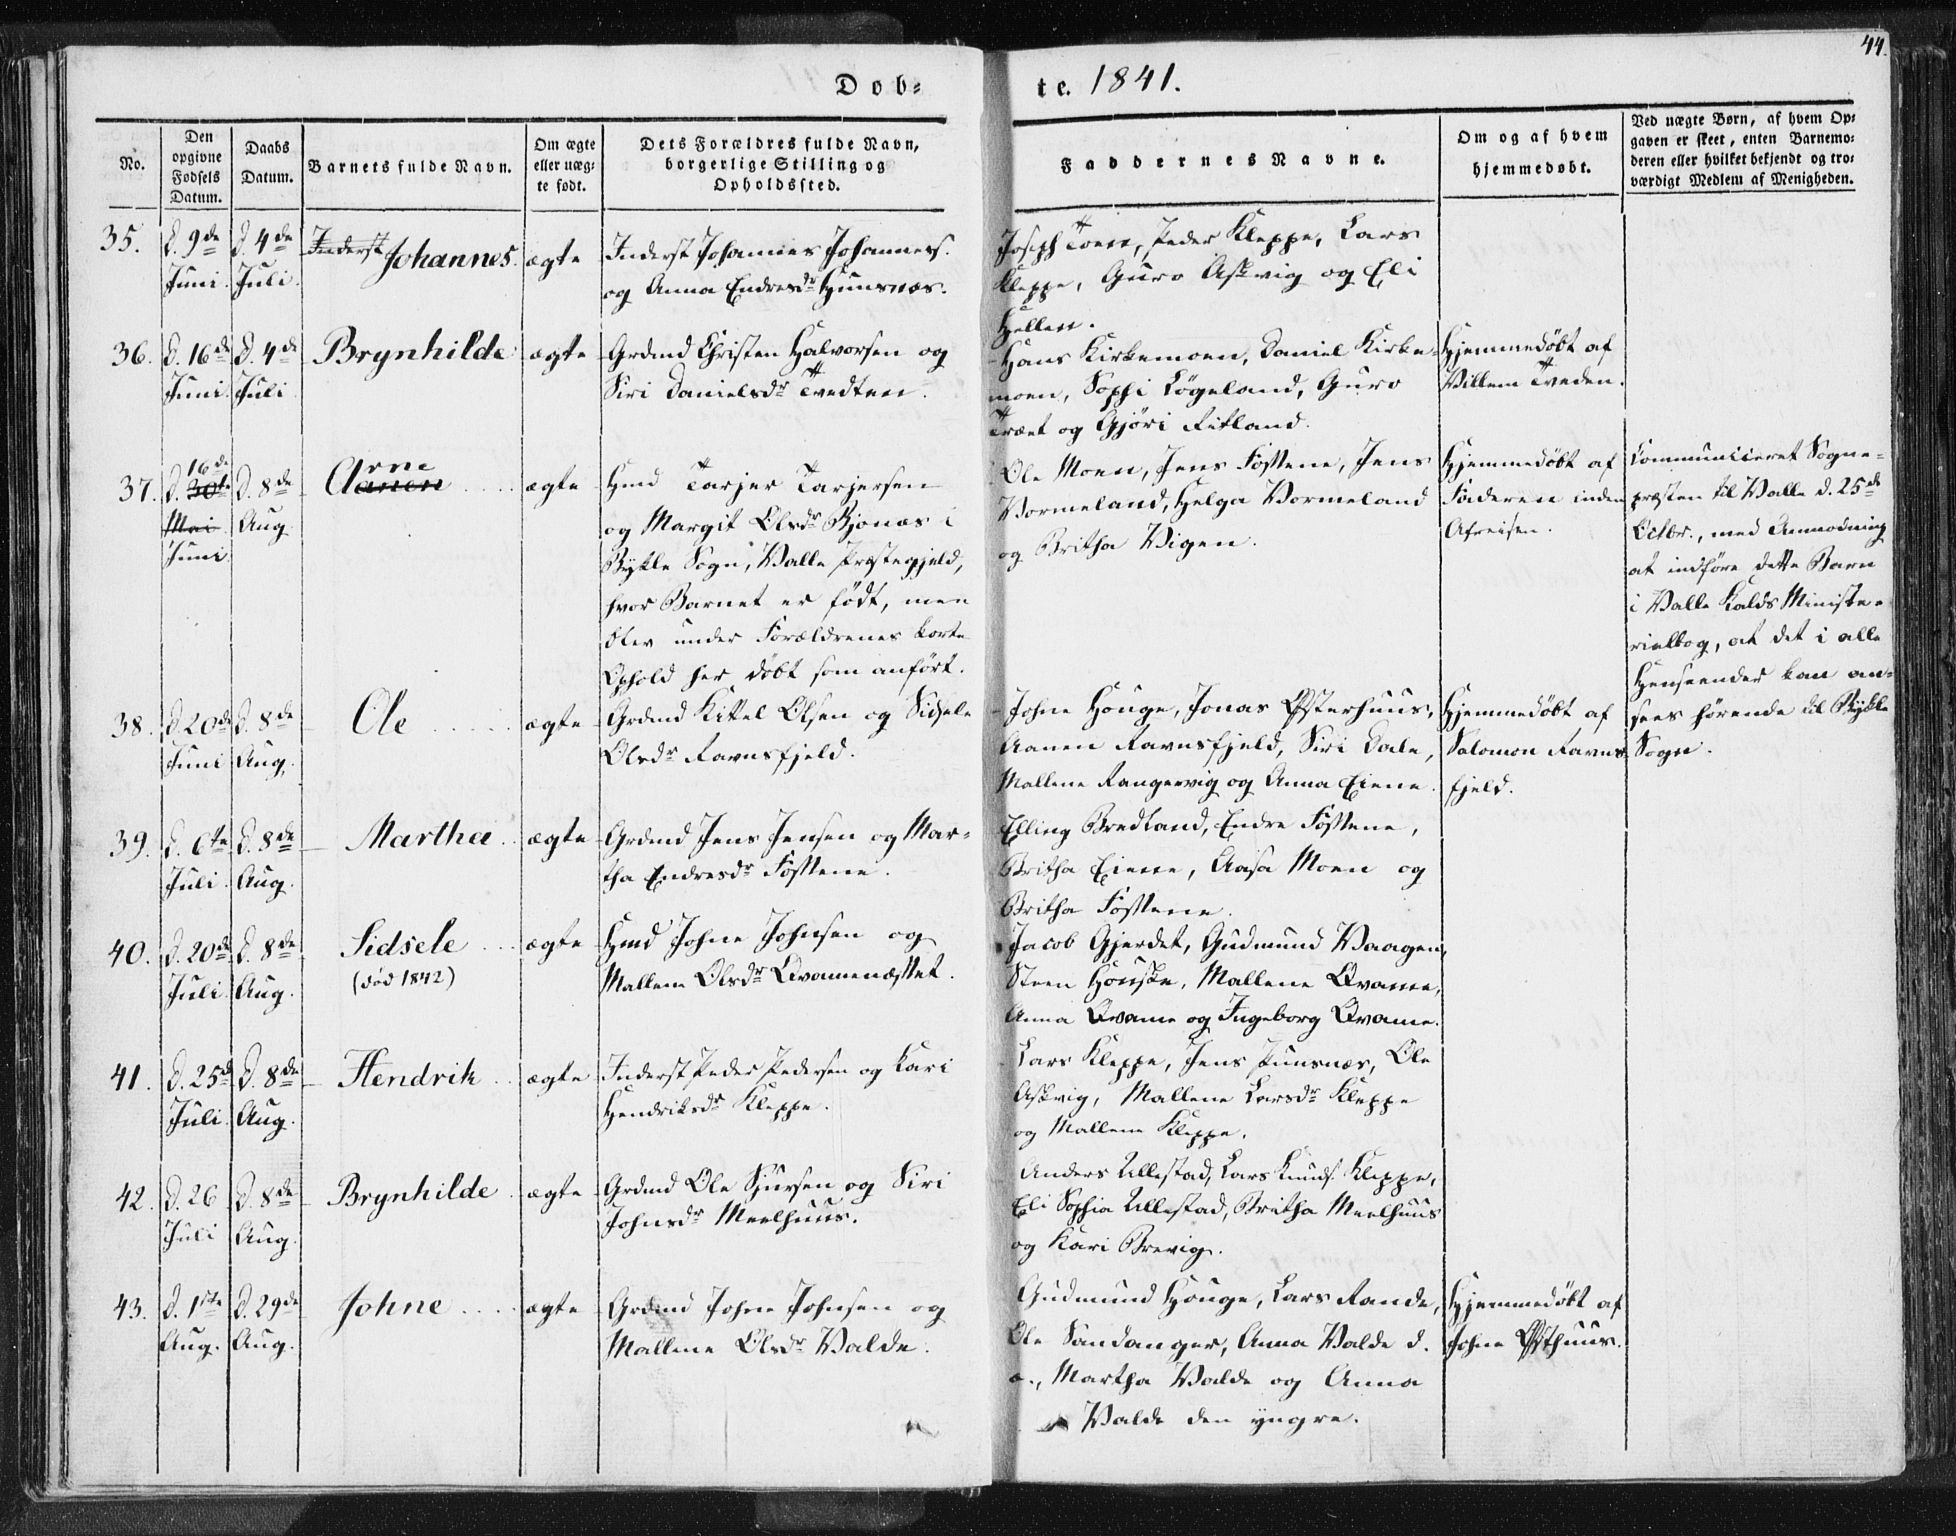 44.
Døb=
te. 1841.
No.
Den
opgivne
Fødsels
Datum.
Daabs
Datum.
Barnets fulde Navn.
Om ægte
eller uæg=
te født.
Dets Forældres fulde Navn,
borgerlige Stilling og
Opholdssted.
Faddernes Navne.
Om og af hvem
hjemmedøbt.
Ved uægte Børn, af hvem Op=
gaven er skeet, enten Barnemo=
deren eller hvilket bekjendt og tro=
værdigt Medlem af Menigheden.
35.
d. 9de
Juni.
d. 4de
Juli.
Inderst Johannes.
ægte
Inderst Johannes Johannes.
og Anna Endresdr Hunsnæs.
Joseph Toen, Peder Kleppe, Lars
Kleppe, Guro Askvig og Eli
Hellen.
36.
d. 16de
Juni.
d. 4de
Juli.
Brynhilde
ægte
Grdmd Christen Halvorsen og
Siri Danielsdr Tvedten.
Hans Kirkemoen, Daniel Kirke=
moen, Sophi Løgeland, Guro
Træet og Gjøri Ritland.
Hjemmedøbt af
Villem Tveden.
37.
16de
d. 30te
Mai
Juni
d. 8de
Aug.
Arne
Aanen
ægte
Hmd Tarjer Tarjersen
og Margit Olsdr Bjonæs i
Bykle Sogn, Valle Præstegjeld,
hvor Barnet er født, men
blev under Forældrenes korte
Ophold her døbt som anført.
Ole Moen, Jens Fostene, Jens
Vormeland, Helga Vormeland
og Britha Vigen.
Hjemmedøbt af
Faderen inden
Afreisen.
Communiceret Sogne=
præsten til Valle d. 25de
Octbr., med Anmodning
at indføre dette Barn
i Valle Kalds Ministe=
rialbog, at det i alle
Henseender kan an=
sees hørende til Bykle
Sogn.
38.
d. 20de
Juni
d. 8de
Aug.
Ole
ægte
Grdmd Kittel Olsen og Sidsele
Olsdr Ravnsfjeld.
Johne Houge, Jonas Østerhuus,
Aanen Ravnsfjeld, Siri Dale,
Mallene Rangervig og Anna Eiene.
Hjemmedøbt af
Salomon Ravns
fjeld.
39.
d. 6te
Juli.
d. 8de
Aug.
Martha
ægte
Grdmd Jens Jensen og Mar=
tha Endresdr Fostene.
Elling Bredland, Endre Fostene,
Britha Eiene, Aasa Moen og
Britha Fostene.
40.
d. 20de
Juli.
d. 8de
Aug.
Sidsele
(død 1842)
ægte
Hmd Johne Johnsen og
Mallene Olsdr Qvamenæsset.
Jacob Gjerdet, Gudmund Vaagen,
Steen Houske, Mallene Qvame,
Anna Qvame og Ingeborg Qvame.
41.
d. 25de
Juli.
d. 8de
Aug.
Hendrik
ægte
Inderst Peder Pedersen og Kari
Hendriksdr Kleppe.
Lars Kleppe, Jens Punsnæs, Ole
Askvig, Mallene Larsdr Kleppe
og Mallene Kleppe.
42.
d. 26
Juli
d. 8de
Aug.
Brynhilde
ægte
Grdmd Ole Sjursen og Siri
Johnsdr Meelhuus.
Anders Ullestad, Lars Knuds. Kleppe,
Eli Sophia Ullestad, Britha Meelhuus
og Kari Brevig.
43.
d. 1ste
Aug.
d. 29de
Aug.
Johne
ægte
Grdmd Johne Johnsen og
Mallene Olsdr Valde.
Gudmund Houge, Lars Rande,
Ole Sandanger, Anna Valde d.
æ., Martha Valde og Anna
Valde den yngre.
Hjemmedøbt af
Johne Østhuus.